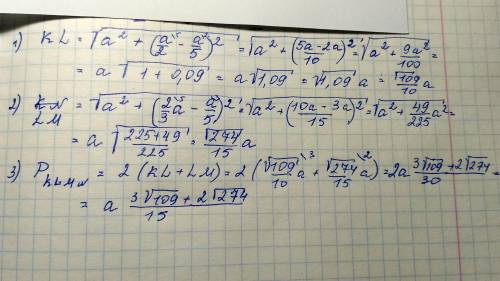 1) KL = √(a² + (a/2 \5 - a/5 \2)²) = √(a² + ((5a-2a)/10)²) = √(a² + 9a²/100) =
= a √(1 + 0,09) = a √1,09 = √1,09 a = √109/10 a
2) KN LM = √(a² + (2/3 \5 a - a/5 \3)²) = √(a² + ((10a - 3a)/15)²) = √(a² + 49/225 a²) =
= a √((225+49)/225) = √274/15 a
3) P KLMN = 2 (KL + LM) = 2 (√109/10 \3 a + √274/15 \2 a) = 2a (3√109 + 2√274)/30 =
= a (3√109 + 2√274)/15